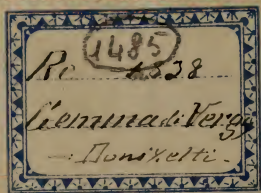 1485
Ro 1838
Gemma di Vergy
Donizetti.